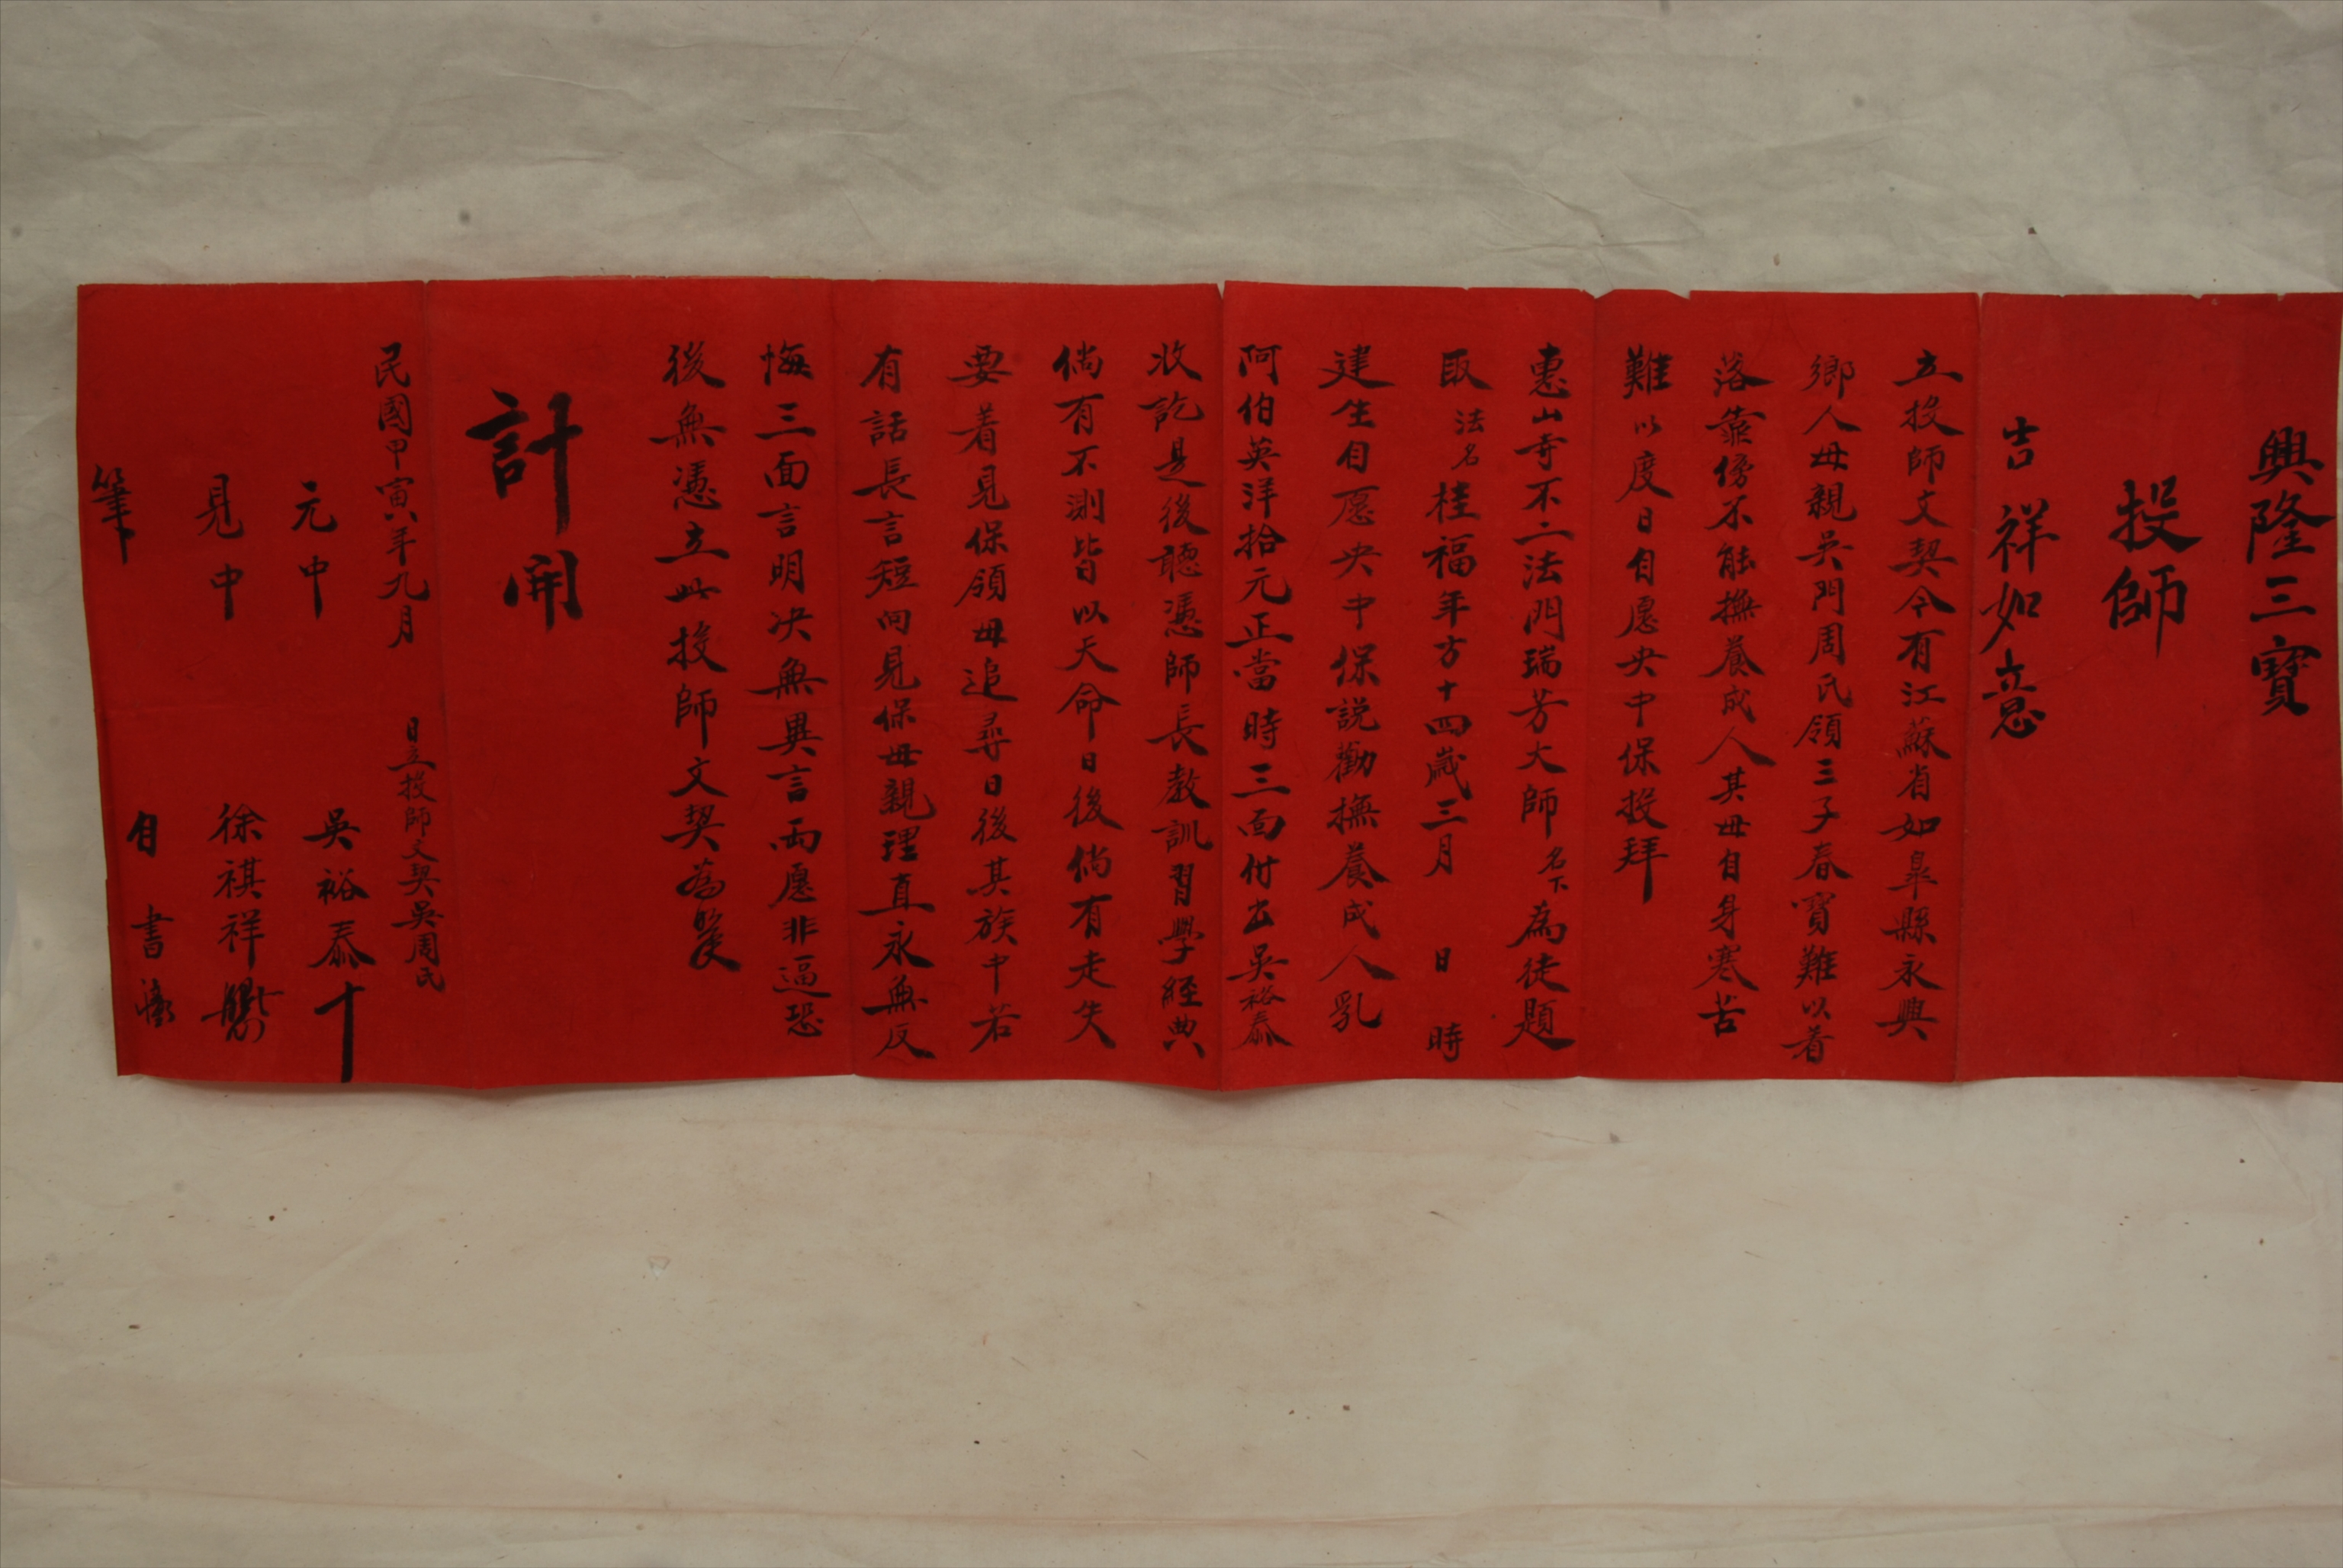 興隆三寶
投師
吉祥如意
立投師文契今有江蘇省如皐縣永興
鄉人母親吳門周氏領三子春寶難以着
落靠傍不能撫養成人其母自身寒苦
難以度日自愿央中保投拜
惠山寺不二法門瑞芳大師名下為徒題
取法名桂福年方十四歲三月 日 時
建生自愿央中保説勸撫養成人乳
阿伯英洋拾元正當時三面付出吳裕泰
收訖是後聽憑師長教訓習學經典
倘有不測皆以天命日後倘有走失
要着見保領毋追尋日後其族中若
有話長言短向見保母親理直永無反
悔三面言明决無異言両愿非逼恐
後無憑立此投師文契為㨿
計開
民國甲寅年九月 日立投師文契吳周氏
元中 吳裕泰十
見中 徐祺祥
筆 自書